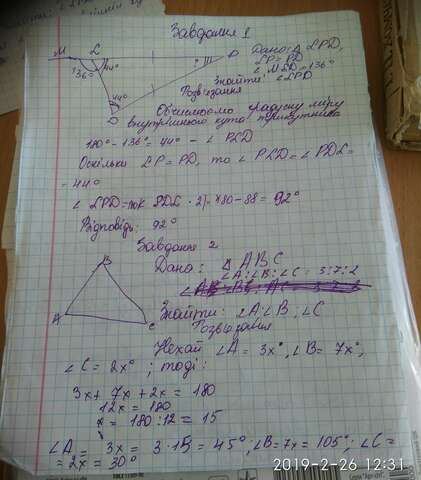 Завдання 1
M
L
D
136°
44°
44°
P
Дано: Δ LPD,
LP = PD
∠ MLD = 136°
Знайти:
∠ LPD
Розв'язання
Обчислюємо градусну міру
внутрішнього кута трикутника
180° - 136° = 44° - ∠ PLD
Оскільки LP = PD, то ∠ PLD = ∠ PDL =
= 44°
180 - 88 = 92°
Відповідь: 92°
Завдання 2
Дано: Δ ABC
∠A : ∠B : ∠C = 3:7:2
B
A
C
Знайти: ∠A; ∠B; ∠C
Розв'язання
Нехай ∠A = 3x°, ∠B = 7x°,
∠C = 2x°; тоді:
3x + 7x + 2x = 180
12x = 180
x = 180 : 12 = 15
∠A = 3x = 3 · 15 = 45°, ∠B = 7x = 105°; ∠C =
= 2x = 30°
2019-2-26 12:31